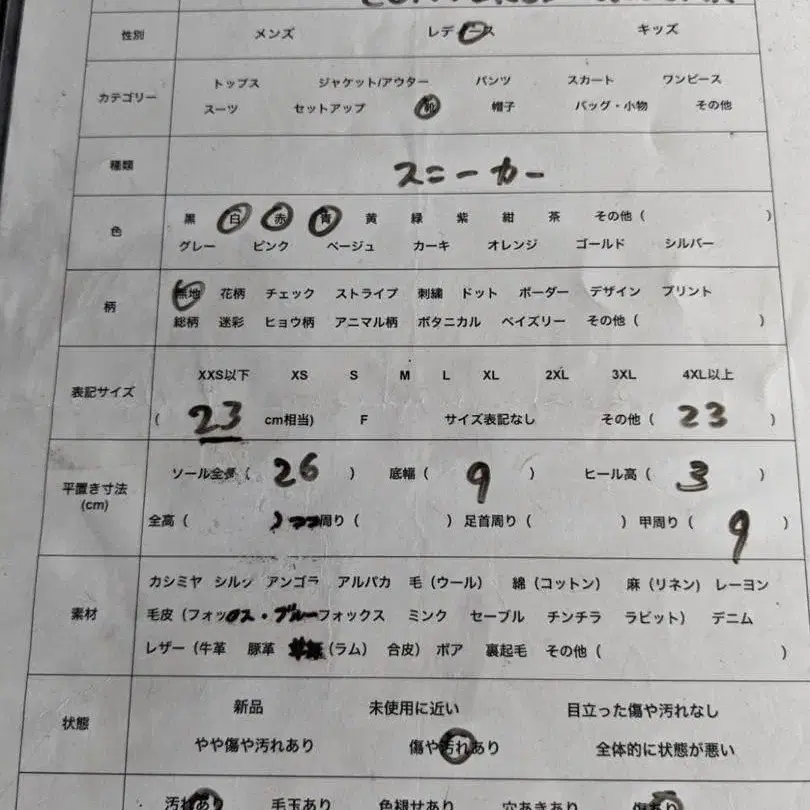 性別 メンズ レディース キッズ
カテゴリー
トップス ジャケット/アウター パンツ スカート ワンピース
スーツ セットアップ 靴 帽子 バッグ・小物 その他
種類 スニーカー
色
黒 白 赤 青 黄 緑 紫 紺 茶 その他 ( )
グレー ピンク ベージュ カーキ オレンジ ゴールド シルバー
柄
無地 花柄 チェック ストライプ 刺繍 ドット ボーダー デザイン プリント
総柄 迷彩 ヒョウ柄 アニマル柄 ボタニカル ペイズリー その他 ( )
表記サイズ
XXS以下 XS S M L XL 2XL 3XL 4XL以上
( 23 cm相当) F サイズ表記なし その他 ( 23 )
平置き寸法
(cm)
ソール全長 ( 26 ) 底幅 ( 9 ) ヒール高 ( 3 )
全高 ( ) 周り ( ) 足首周り ( ) 甲周り ( 9 )
素材
カシミヤ シルク アンゴラ アルパカ 毛 (ウール) 綿 (コットン) 麻 (リネン) レーヨン
毛皮 (フォックス・ブルーフォックス ミンク セーブル チンチラ ラビット) デニム
レザー (牛革 豚革 (ラム) 合皮) ボア 裏起毛 その他 ( )
状態
新品 未使用に近い 目立った傷や汚れなし
やや傷や汚れあり 傷や汚れあり 全体的に状態が悪い
汚れあり 毛玉あり 色褪せあり 穴あきあり 傷あり